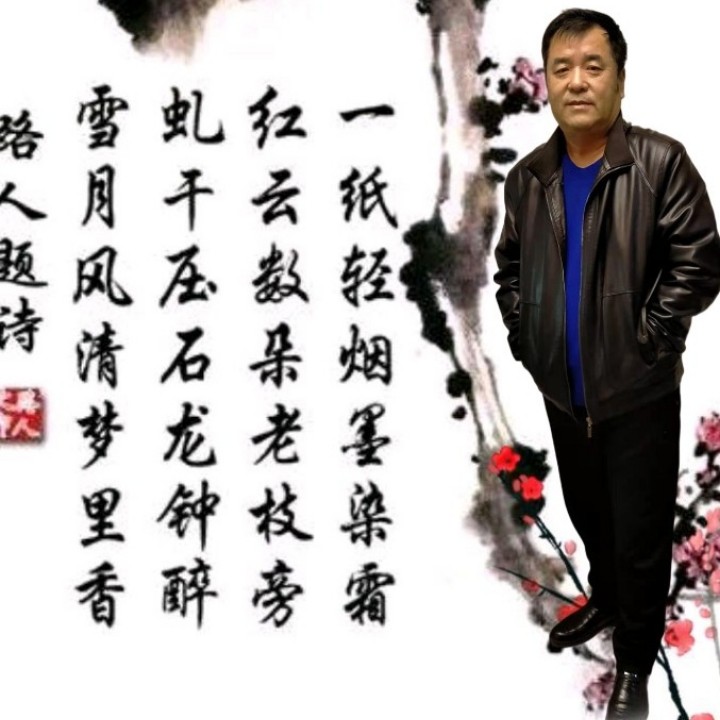 一纸轻烟墨染霜
红云数朵老枝旁
虬干压石龙钟醉
雪月风清梦里香
路人题诗